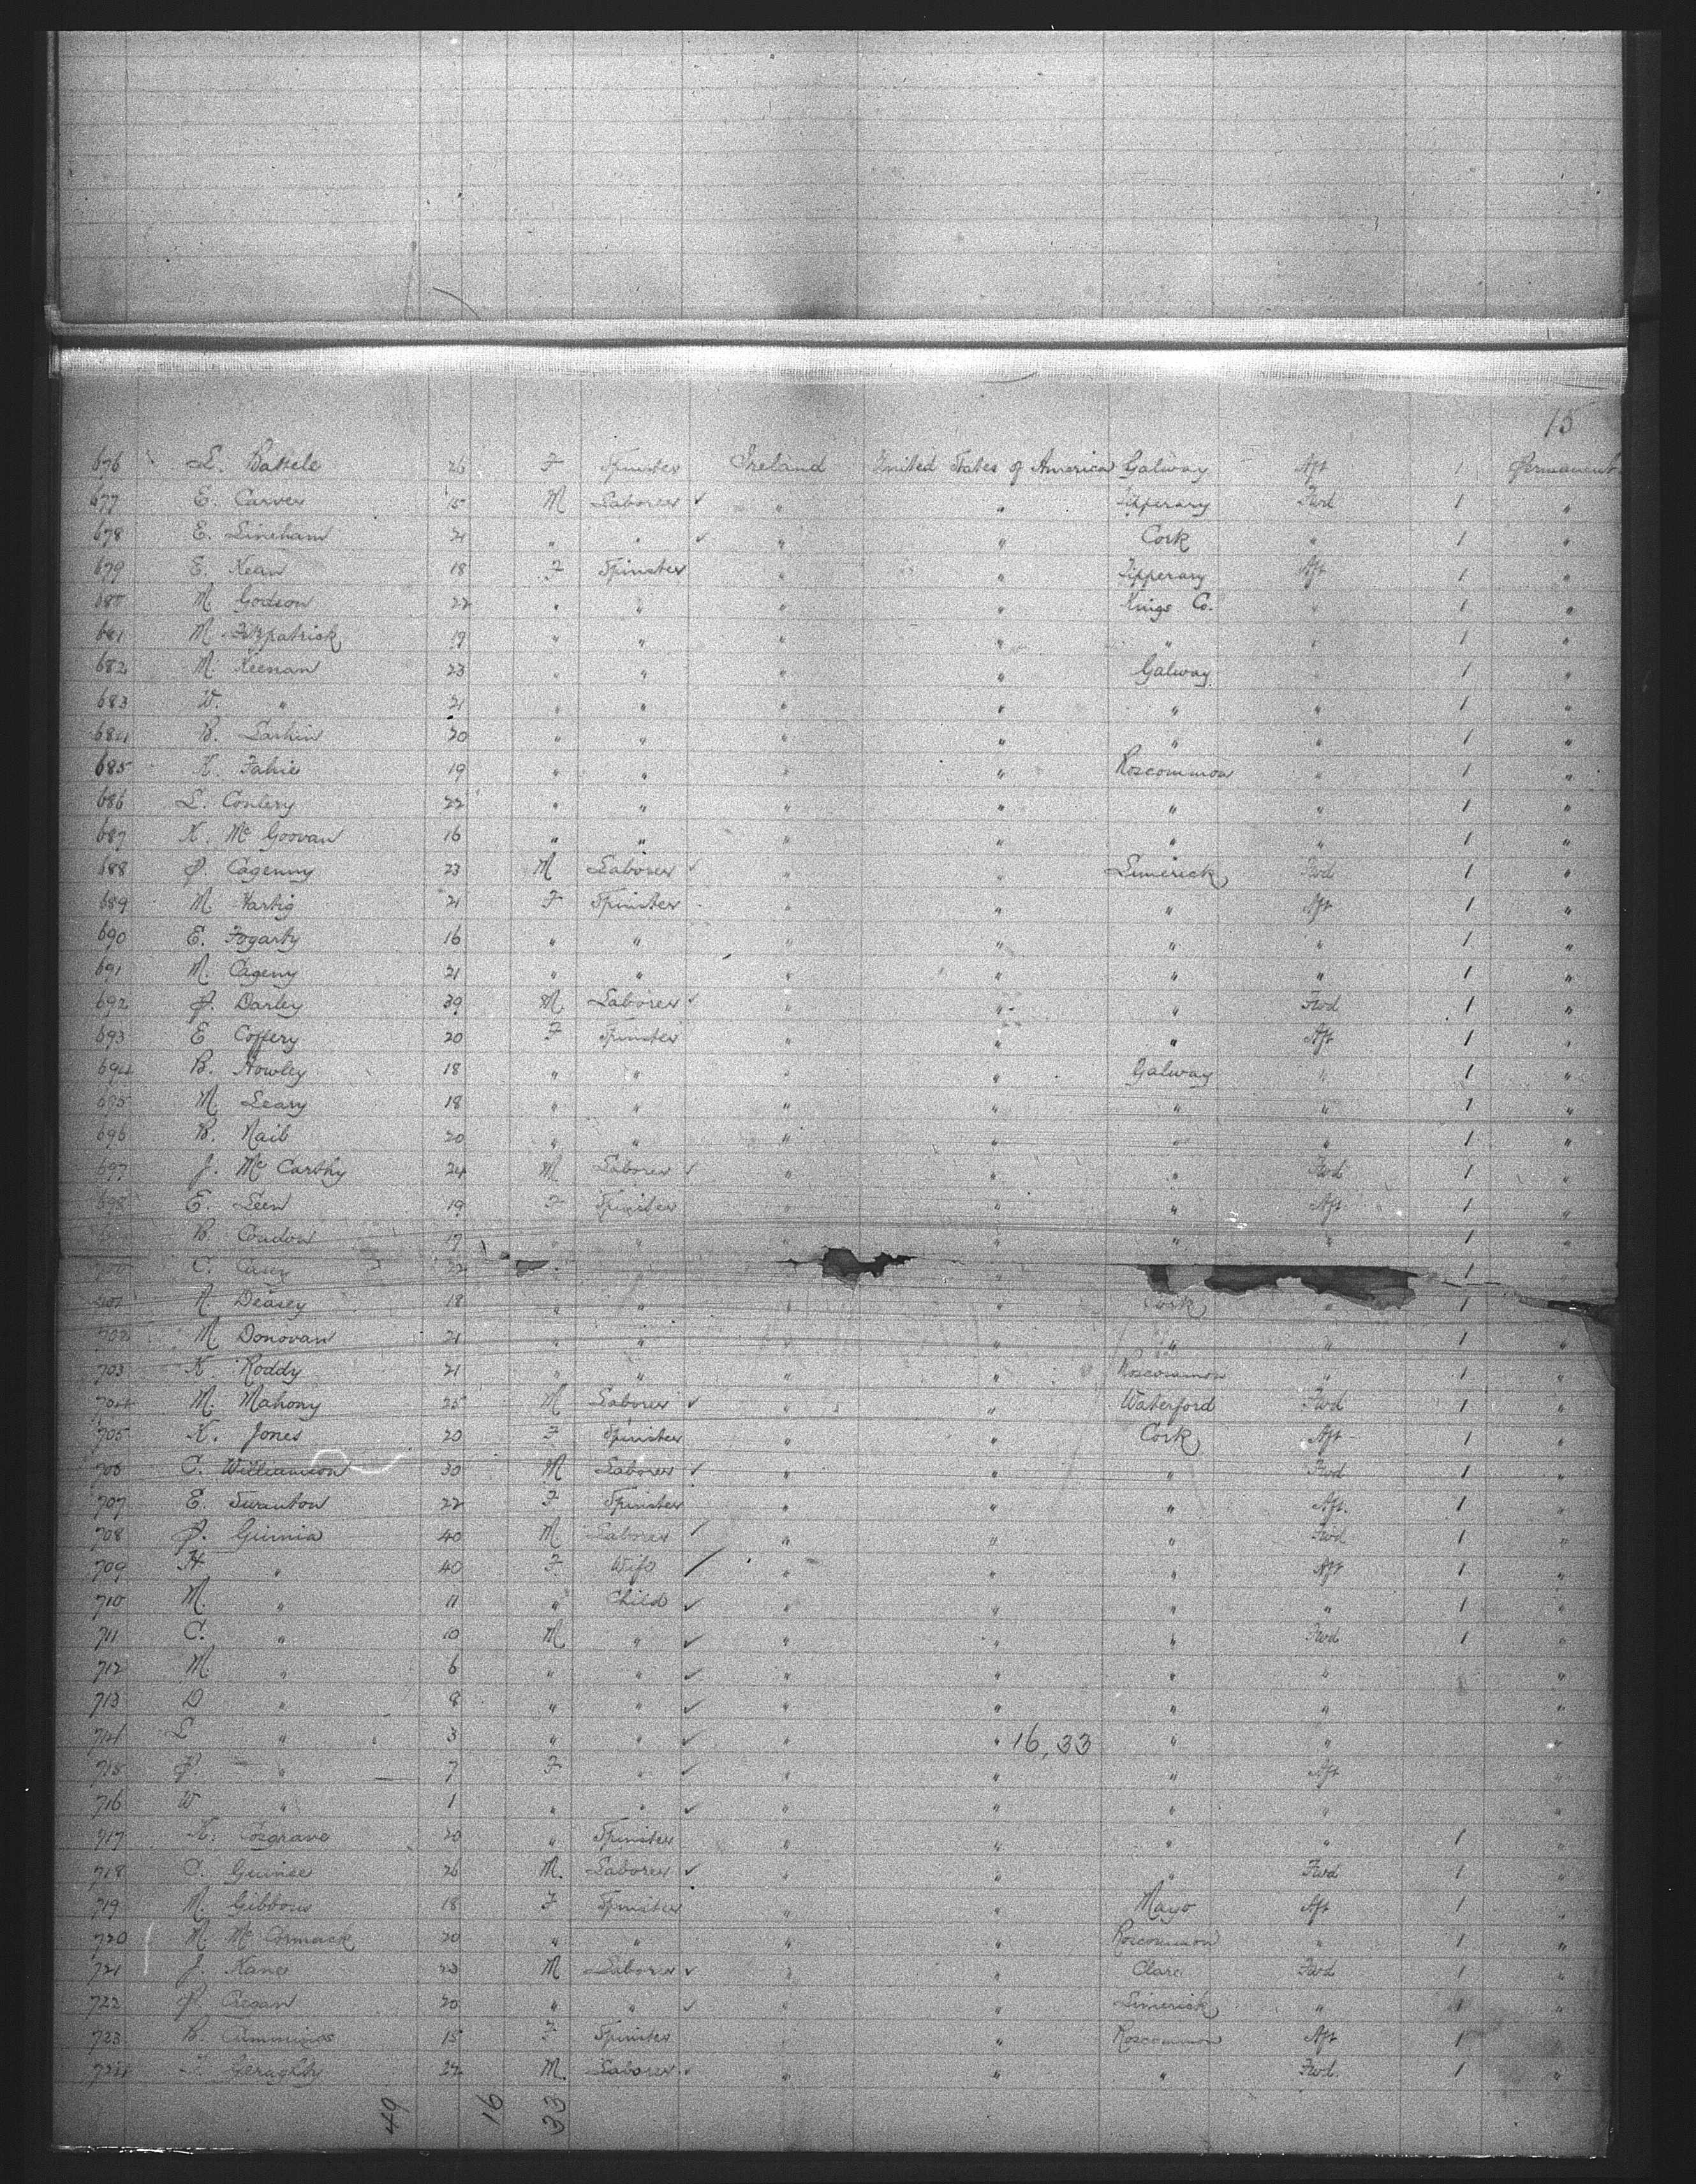 15
676 L. Battele 26 F Spinster Ireland United States of America Galway Aft 1 Permanent
677 E. Carver 15 M Laborer ✓ " " Tipperary Fwd 1 "
678 E. Lineham 21 " " ✓ " " Cork " 1 "
679 E. Kean 18 F Spinster " " Tipperary Aft 1 "
680 M. Godson 22 " " " " Kings Co. " 1 "
681 M. Fitzpatrick 19 " " " " " " 1 "
682 M. Keenan 23 " " " " Galway " 1 "
683 W. " 21 " " " " " " 1 "
684 B. Larkin 20 " " " " " " 1 "
685 K. Fahie 19 " " " " Roscommon " 1 "
686 L. Conlery 22 " " " " " " 1 "
687 K. Mc Goovan 16 " " " " " " 1 "
688 P. Cagenny 23 M Laborer ✓ " " Limerick Fwd 1 "
689 M. Hartig 21 F Spinster " " " Aft 1 "
690 E. Fogarty 16 " " " " " " 1 "
691 M. Cageny 21 " " " " " " 1 "
692 P. Darley 39 M. Laborer ✓ " " " Fwd 1 "
693 E Coffery 20 F Spinster " " " Aft 1 "
694 B. Howley 18 " " " " Galway " 1 "
695 M. Leary 18 " " " " " " 1 "
696 B. Nail 20 " " " " " " 1 "
697 J. Mc Carthy 24 M Laborer ✓ " " " Fwd 1 "
698 E. Leen 19 F Spinster " " " Aft 1 "
B. Condon 17 " " " " " " 1 "
700 C. Casey 22 " 1
701 A. Deasey 18 " " " " Cork " 1
702 M Donovan 21 " " " " " " 1 "
703 K Roddy 21 " " " " Roscommon " 1 "
704 M. Mahony 25 M Laborer ✓ " " Waterford Fwd 1 "
705 K. Jones 20 F Spinster " " Cork Aft 1 "
706 C. Williamson 30 M Laborer ✓ " " " Fwd 1 "
707 E. Swanton 22 F Spinster " " " Aft. 1 "
708 P. Guinia 40 M Laborer ✓ " " " Fwd 1 "
709 H " 40 F Wife / " " " Aft 1 "
710 M. " 11 " Child ✓ " " " " 1 "
711 C. " 10 M " ✓ " " " Fwd 1 "
712 M. " 6 " " ✓ " " " " "
713 D " 8 " " ✓ " " " " "
714 L " 3 " " ✓ " " 16,33 " " "
715 P. " 7 F " ✓ " " " Aft "
716 W " 1 " " ✓ " " " " "
717 K. Cosgrave 20 " Spinster " " " " 1 "
718 C. Guinee 26 M. Laborer ✓ " " " Fwd 1 "
719 M. Gibbons 18 F Spinster " " Mayo Aft 1 "
720 M. Mc Cormack 20 " " " " Roscommon " 1 "
721 J. Kane 23 M Laborer ✓ " " Clare Fwd 1 "
722 P. Cregan 20 " " ✓ " " Limerick " 1 "
723 B. Cummings 15 F Spinster " " Roscommon Aft 1 "
724 Geraghty 22 M. Laborer ✓ " " " Fwd. 1 "
49 16 33